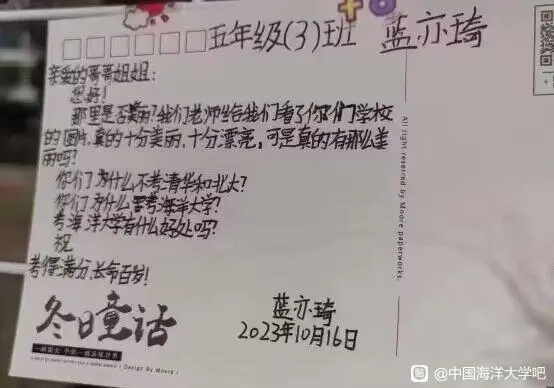 五年级(3)班 蓝亦琦
亲爱的哥哥姐姐:
您好!
那里是否美丽?我们老师给我们看了你们学校
的图片,真的十分美丽,十分漂亮,可是真的有那么美
丽吗?
你们为什么不考清华和北大?
你们为什么要考海洋大学?
考海洋大学有什么好处吗?
祝
考得满分,长命百岁!
蓝亦琦
2023年10月16日
冬日童话
Design By Moore
All right reserred by Moore paperworks.
@中国海洋大学吧